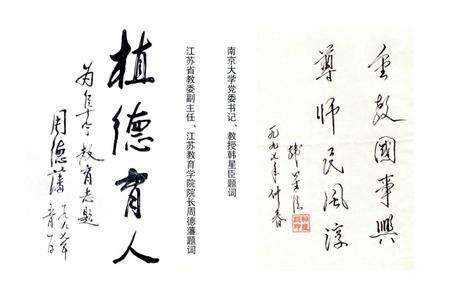 重教國事興
尊師民風淳
一九九七年仲春
韓星臣
南京大学党委书记、教授韩星臣题词
江苏省教委副主任、江苏教育学院院长周德藩题词
植德育人
为阜宁教育志题
周德藩